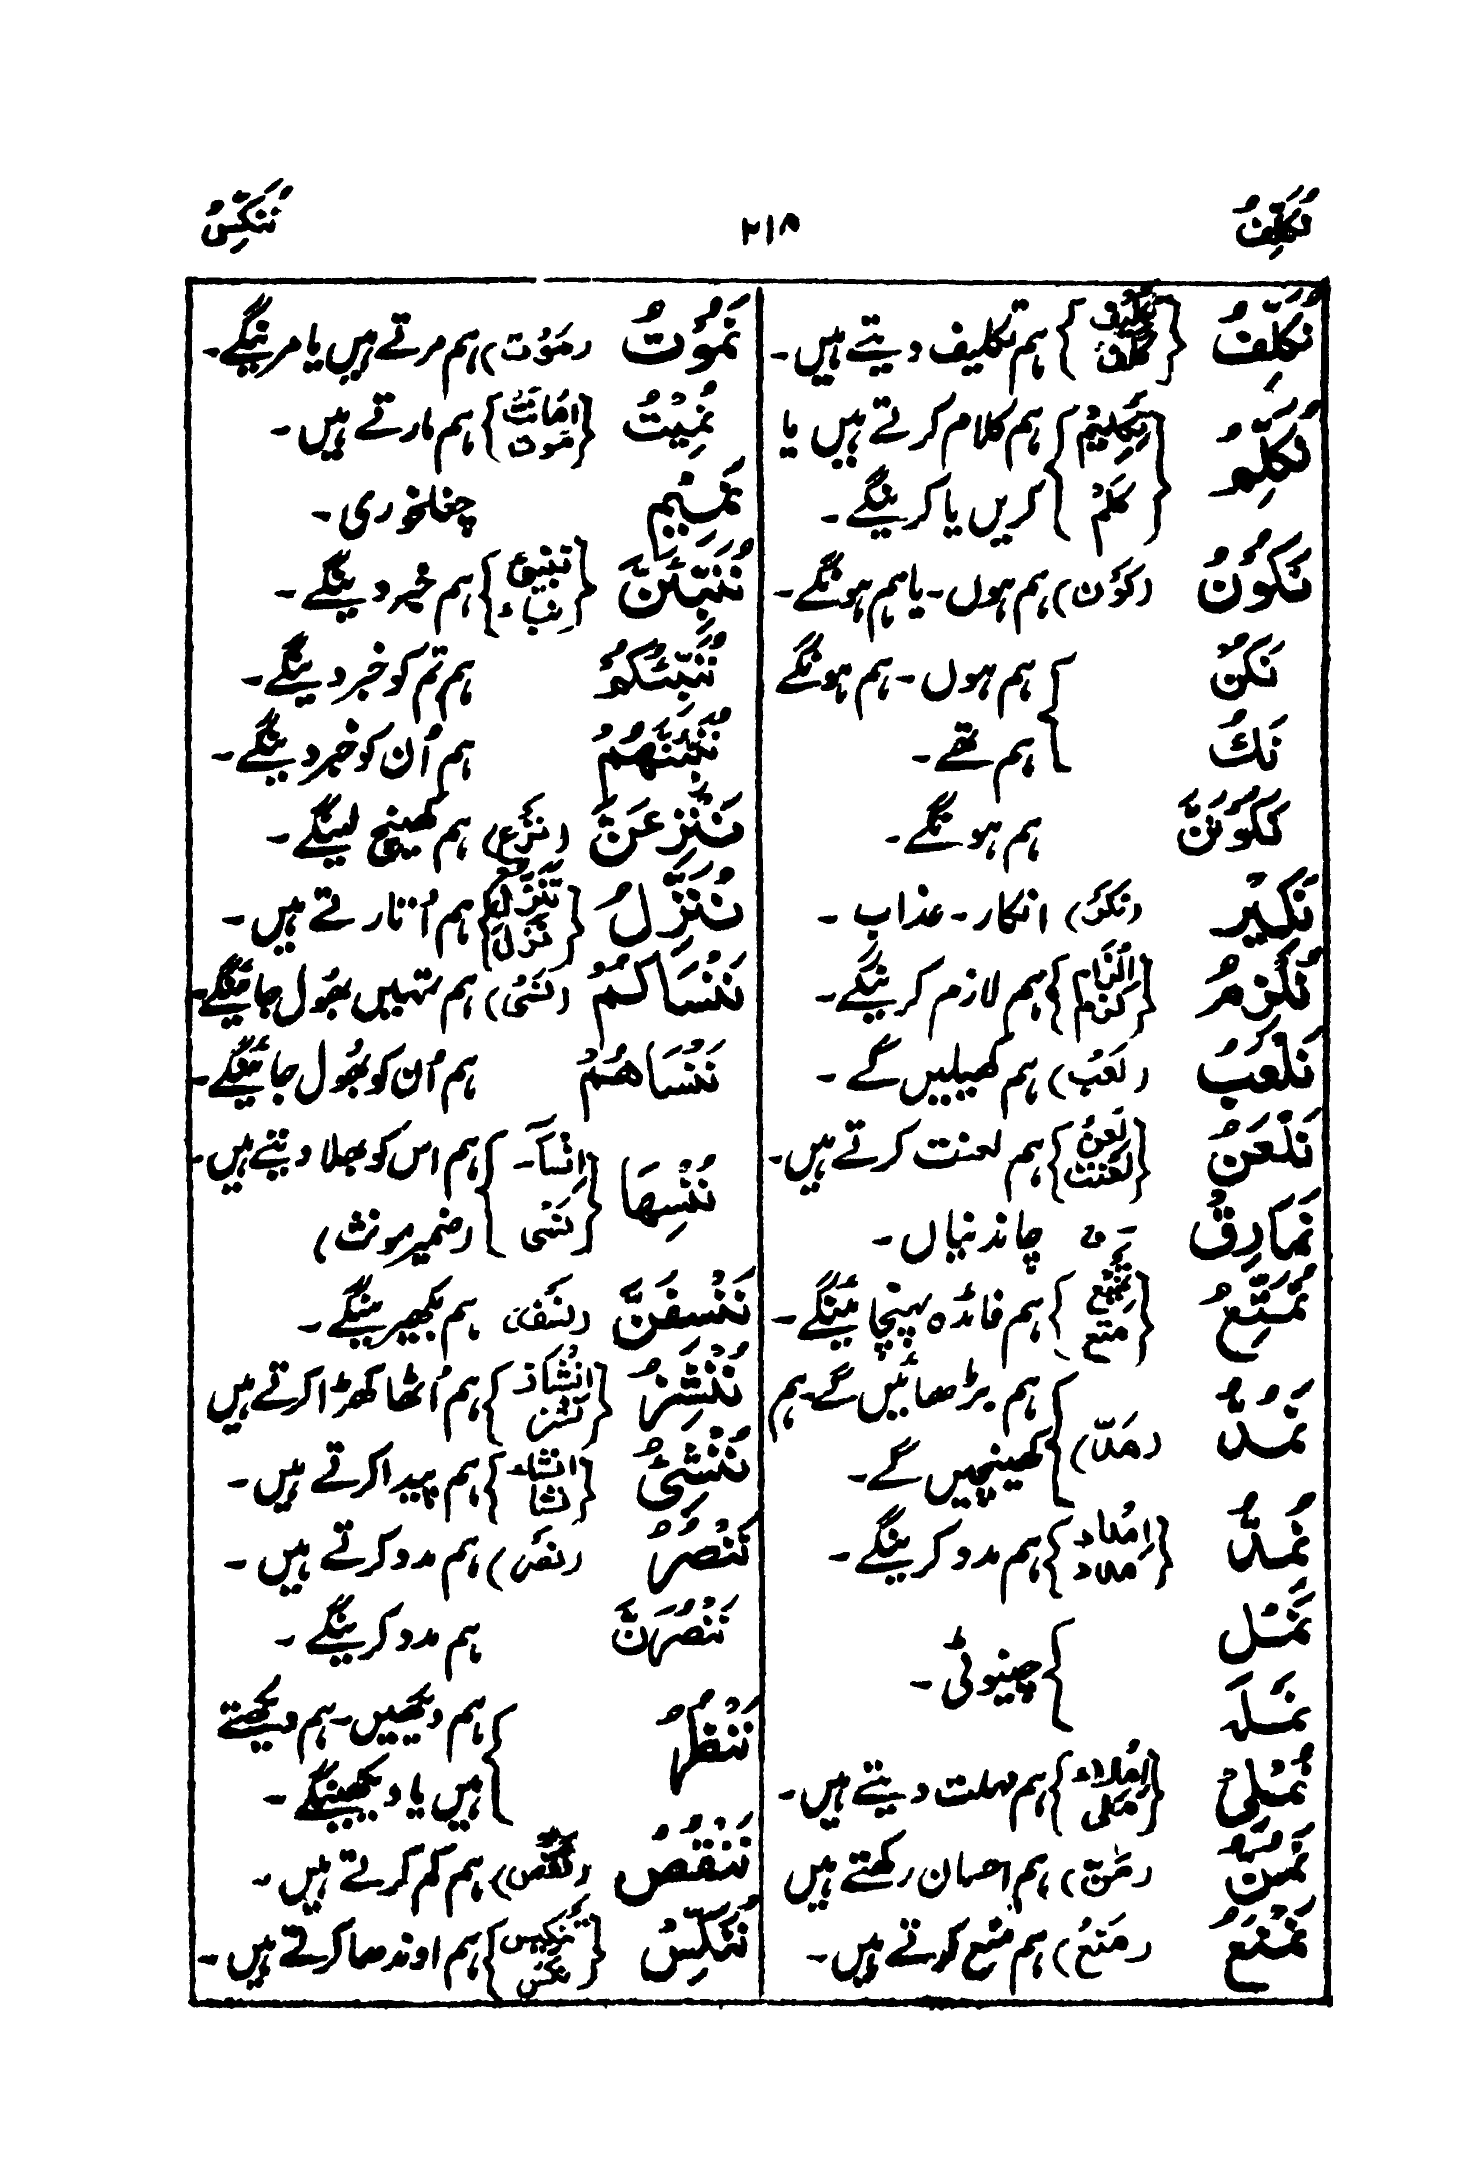 نُكَلِّفُ ۲۱۸ نُنَكِّسُ
نُكَلِّفُ {تَكْلِيف كلف} ہم تکلیف دیتے ہیں۔
نُكَلِّمُ {تَكْلِيم كَلَمْ} ہم کلام کرتے ہیں یا
کریں یا کرینگے۔
نَكُونُ (كَوْن) ہم ہوں۔ یا ہم ہونگے۔
نَكُنْ } ہم ہوں۔ ہم ہونگے
نَكُ } ہم تھے۔
نَكُونَنَّ ہم ہونگے۔
نَكِيْر (نَكْر) انکار۔ عذاب۔
نُلْزِمُ {اِلْزَام لَزَمَ} ہم لازم کرینگے۔
نَلْعَبُ (لَعْب) ہم کھیلیں گے۔
نَلْعَنُ {لَعْن لَعْنَت} ہم لعنت کرتے ہیں۔
نَمَارِقُ چاندنیاں۔
نُمَتِّعُ {تَمْتِيْع متع} ہم فائدہ پہنچائینگے۔
نَمُدُّ (مَدّ) } ہم بڑھائیں گے۔ ہم
کھینچیں گے۔
نُمِدُّ {اِمْدَاد مدد} ہم مدد کرینگے۔
نَمْل } چیونٹی۔
نَمْلَة
نُمْلِیْ {اِمْلَاء مَلَی} ہم مہلت دیتے ہیں۔
نَمُنُّ (مَنّ) ہم احسان رکھتے ہیں
نَمْنَعُ (مَنْع) ہم منع کرتے ہیں۔
نَمُوْتُ (مَوْت) ہم مرتے ہیں یا مرینگے۔
نُمِيْتُ {اِمَاتَت مَوت} ہم مارتے ہیں۔
نَمِيْم چغلخوری۔
نُنَبِّئَنَّ {تنبئ نباء} ہم خبر دینگے۔
نُنَبِّئُكُمْ ہم تم کو خبر دینگے۔
نُنَبِّئَنَّهُمْ ہم اُن کو خبر دینگے۔
نَنْزِعَنَّ (نَزْع) ہم کھینچ لینگے۔
نُنَزِّلُ {تَنْزِيل نَزَلَ} ہم اُتارتے ہیں۔
نَنْسَاكُمْ (نَسْی) ہم تمہیں بھُول جائینگے۔
نَنْسَاهُمْ ہم اُن کو بھُول جائینگے۔
نُنْسِهَا {اِنْسَآء نَسْی} ہم اس کو بھلا دیتے ہیں۔
(ضمیر مونث)
نَنْسِفَنَّ (نَسْف) ہم بکھیرینگے۔
نُنْشِزُ {اِنْشَاز نَشْز} ہم اُٹھا کھڑا کرتے ہیں
نُنْشِئُ {اِنْشَاء نشا} ہم پیدا کرتے ہیں۔
نَنْصُرُ (نَصْر) ہم مدد کرتے ہیں۔
نَنْصُرَنَّ ہم مدد کرینگے۔
نَنْظُرُ } ہم دیکھیں۔ ہم دیکھتے
ہیں یا دیکھینگے۔
نَنْقُصُ (نَقْص) ہم کم کرتے ہیں۔
نُنَكِّسُ {تَنْكِيس نكس} ہم اوندھا کرتے ہیں۔